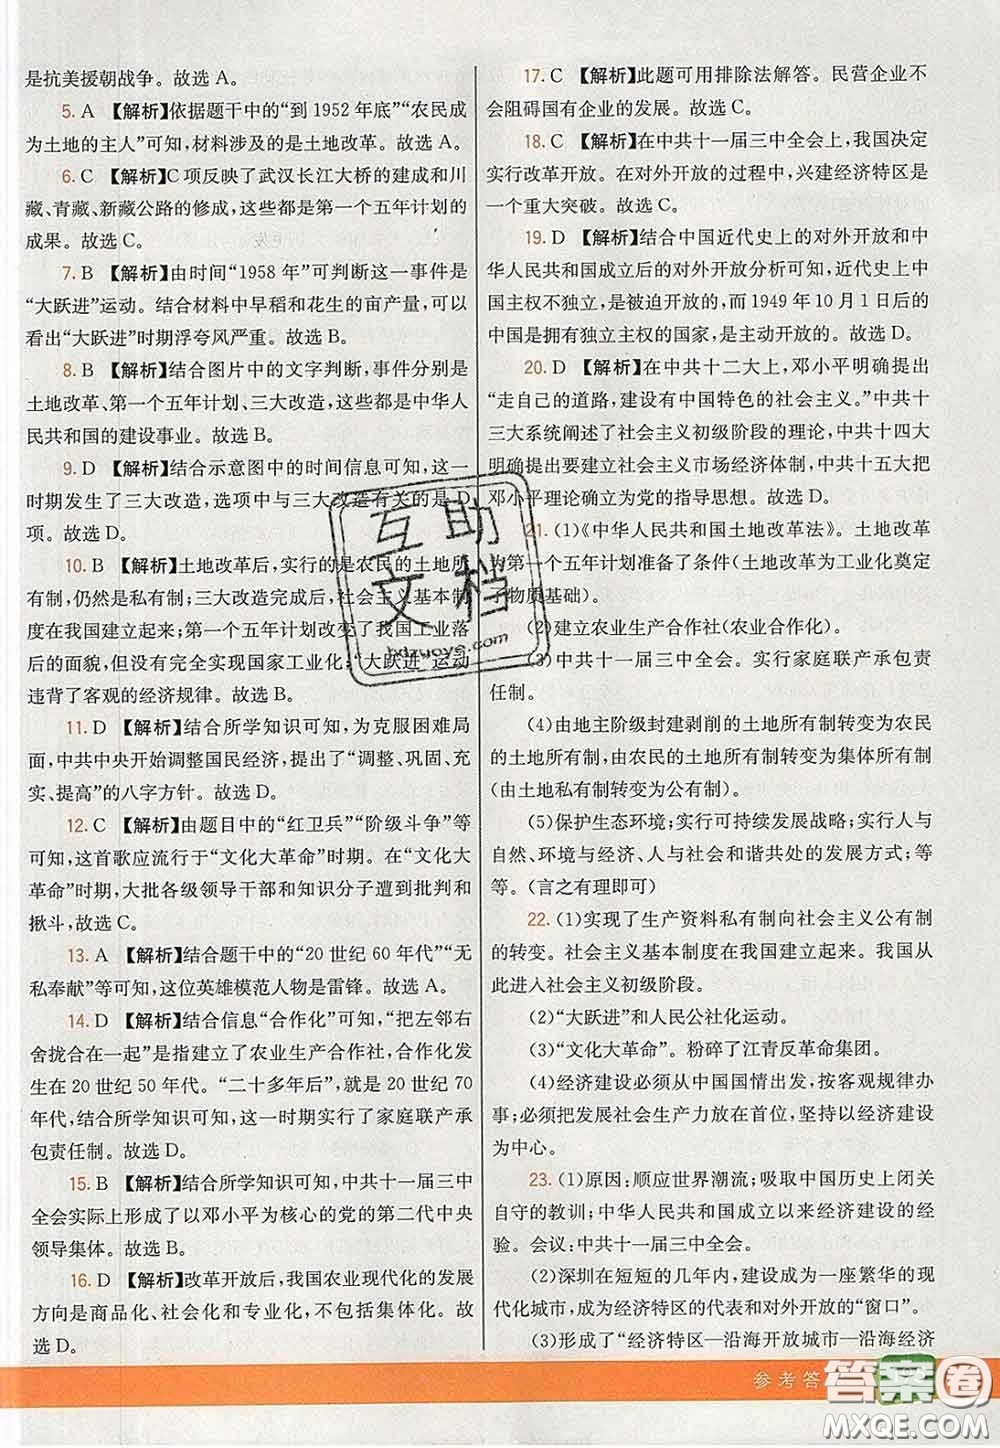 是抗美援朝战争。故选 A。
5. A 【解析】依据题干中的“到 1952 年底”“农民成
为土地的主人”可知，材料涉及的是土地改革。故选 A。
6. C 【解析】C 项反映了武汉长江大桥的建成和川
藏、青藏、新藏公路的修成，这些都是第一个五年计划的
成果。故选 C。
7. B 【解析】由时间“1958 年”可判断这一事件是
“大跃进”运动。结合材料中早稻和花生的亩产量，可以
看出“大跃进”时期浮夸风严重。故选 B。
8. B 【解析】结合图片中的文字判断，事件分别是
土地改革、第一个五年计划、三大改造，这都是中华人
民共和国的建设事业。故选 B。
9. D 【解析】结合示意图中的时间信息可知，这一
时期发生了三大改造，选项中与三大改造有关的是 D
项。故选 D。
10. B 【解析】土地改革后，实行的是农民的土地所
有制，仍然是私有制；三大改造完成后，社会主义基本制
度在我国建立起来；第一个五年计划改变了我国工业落
后的面貌，但没有完全实现国家工业化；“大跃进”运动
违背了客观的经济规律。故选 B。
11. D 【解析】结合所学知识可知，为克服困难局
面，中共中央开始调整国民经济，提出了“调整、巩固、充
实、提高”的八字方针。故选 D。
12. C 【解析】由题目中的“红卫兵”“阶级斗争”等
可知，这首歌应流行于“文化大革命”时期。在“文化大
革命”时期，大批各级领导干部和知识分子遭到批判和
揪斗。故选 C。
13. A 【解析】结合题干中的“20 世纪 60 年代”“无
私奉献”等可知，这位英雄模范人物是雷锋。故选 A。
14. D 【解析】结合信息“合作化”可知，“把左邻右
舍拢合在一起”是指建立了农业生产合作社，合作化发
生在 20 世纪 50 年代。“二十多年后”，就是 20 世纪 70
年代，结合所学知识可知，这一时期实行了家庭联产承
包责任制。故选 D。
15. B 【解析】结合所学知识可知，中共十一届三中
全会实际上形成了以邓小平为核心的党的第二代中央
领导集体。故选 B。
16. D 【解析】改革开放后，我国农业现代化的发展
方向是商品化、社会化和专业化，不包括集体化。故
选 D。
17. C 【解析】此题可用排除法解答。民营企业不
会阻碍国有企业的发展。故选 C。
18. C 【解析】在中共十一届三中全会上，我国决定
实行改革开放。在对外开放的过程中，兴建经济特区是
一个重大突破。故选 C。
19. D 【解析】结合中国近代史上的对外开放和中
华人民共和国成立后的对外开放分析可知，近代史上中
国主权不独立，是被迫开放的，而 1949 年 10 月 1 日后的
中国是拥有独立主权的国家，是主动开放的。故选 D。
20. D 【解析】在中共十二大上，邓小平明确提出
“走自己的道路，建设有中国特色的社会主义。”中共十
三大系统阐述了社会主义初级阶段的理论，中共十四大
明确提出要建立社会主义市场经济体制，中共十五大把
邓小平理论确立为党的指导思想。故选 D。
21. (1)《中华人民共和国土地改革法》。土地改革
为第一个五年计划准备了条件(土地改革为工业化奠定
了物质基础)。
(2)建立农业生产合作社(农业合作化)。
(3)中共十一届三中全会。实行家庭联产承包责
任制。
(4)由地主阶级封建剥削的土地所有制转变为农民
的土地所有制，由农民的土地所有制转变为集体所有制
(由土地私有制转变为公有制)。
(5)保护生态环境；实行可持续发展战略；实行人与
自然、环境与经济、人与社会和谐共处的发展方式；等
等。(言之有理即可)
22. (1)实现了生产资料私有制向社会主义公有制
的转变。社会主义基本制度在我国建立起来。我国从
此进入社会主义初级阶段。
(2)“大跃进”和人民公社化运动。
(3)“文化大革命”。粉碎了江青反革命集团。
(4)经济建设必须从中国国情出发，按客观规律办
事；必须把发展社会生产力放在首位，坚持以经济建设
为中心。
23. (1)原因：顺应世界潮流；吸取中国历史上闭关
自守的教训；中华人民共和国成立以来经济建设的经
验。会议：中共十一届三中全会。
(2)深圳在短短的几年内，建设成为一座繁华的现
代化城市，成为经济特区的代表和对外开放的“窗口”。
(3)形成了“经济特区—沿海开放城市—沿海经济
互助
文档
hdzuoye.com
参考答
答案圈
MXQE.COM